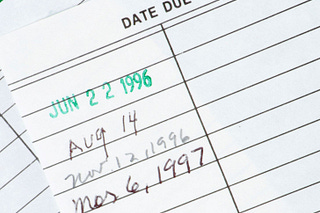 DATE DUE
JUN 22 1996
Aug 14
Nov 12, 1996
Mar 6, 1997